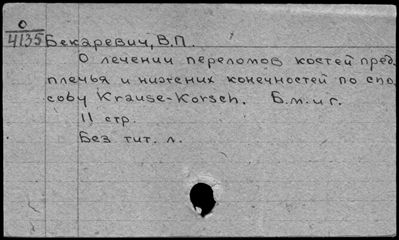 О
4135 Бекаревич, В.П.
О лечении переломов костей пред-
плечья и нижних конечностей по спо-
собу Krause-Korsch. Б.м. и г.
11 стр.
Без тит. л.